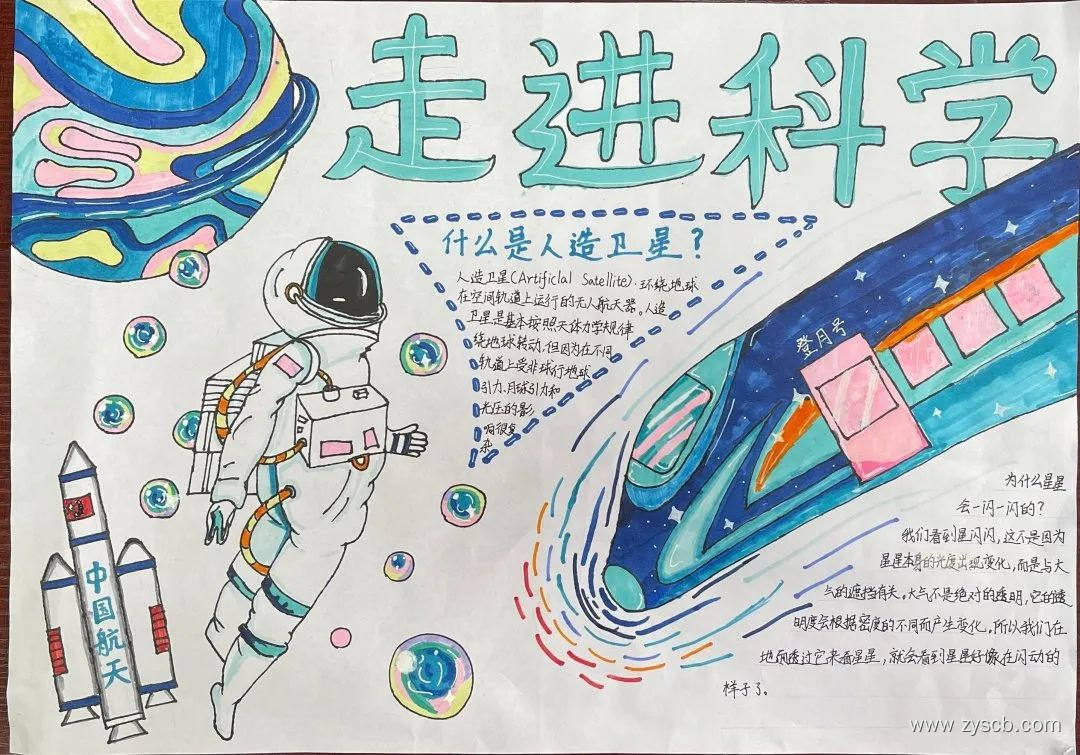 走进科学
什么是人造卫星？
人造卫星(Artificlal Satellite)·环绕地球
在空间轨道上运行的无人航天器。人造
卫星是基本按照天体力学规律
绕地球转动,但因为在不同
轨道上受非球行地球
引力、月球引力和
光压的影
响很复
杂
登月号
中国航天
为什么星星
会一闪一闪的？
我们看到星闪闪，这不是因为
星星本身的光度出现变化，而是与大
气的遮挡有关。大气不是绝对的透明，它的透
明度会根据密度的不同而产生变化。所以我们在
地面透过它来看星星，就会看到星星好像在闪动的
样子了。
www.zyscb.com